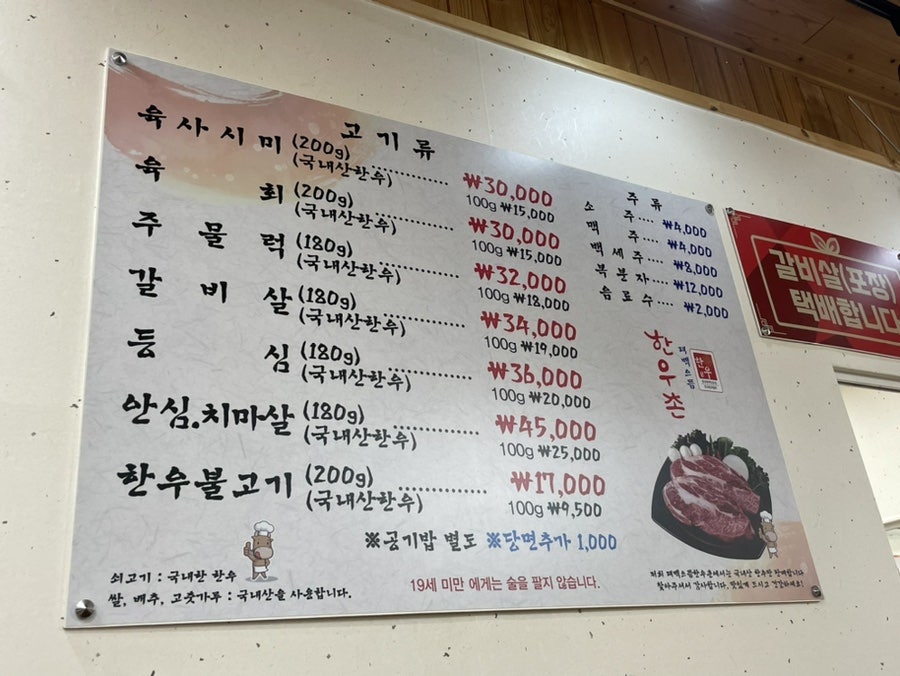 고기류
육사시미(200g)
(국내산한우).............. ₩30,000
100g ₩15,000
육 회(200g)
(국내산한우)............. ₩30,000
100g ₩15,000
주물럭(180g)
(국내산한우)............. ₩32,000
100g ₩18,000
갈비살(180g)
(국내산한우)............. ₩34,000
100g ₩19,000
등 심(180g)
(국내산한우)............. ₩36,000
100g ₩20,000
안심.치마살(180g)
(국내산한우)............. ₩45,000
100g ₩25,000
한우불고기(200g)
(국내산한우)............. ₩17,000
100g ₩9,500
※공기밥 별도 ※당면추가 1,000
쇠고기 : 국내한 한우
쌀, 배추, 고춧가루 : 국내산을 사용합니다.
19세 미만 에게는 술을 팔지 않습니다.
주류
소 주.... ₩4,000
맥 주.... ₩4,000
백세주.... ₩8,000
복분자.... ₩12,000
음료수.... ₩2,000
한우촌
한우
찾아주셔서 감사합니다. 맛있게 드시고 건강하세요!
갈비살(포장)
택배합니다